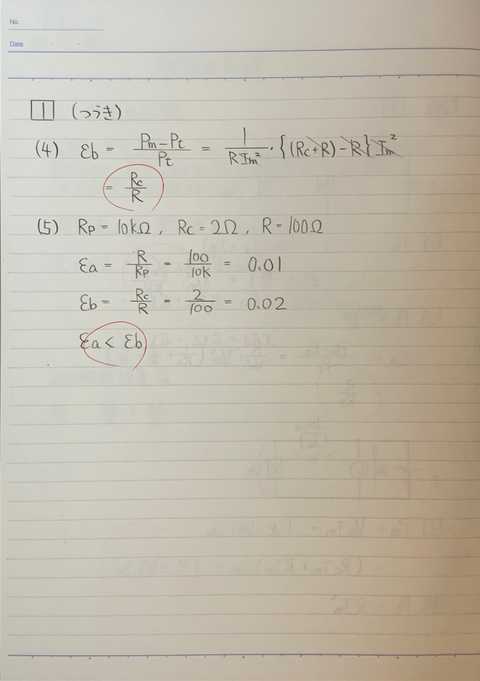 No.
Date
1 (つづき)
(4) εb = Pm-Pt/Pt = 1/RIm²・{(Rc+R)-R}Im²
= Rc/R
(5) Rp=10kΩ, Rc=2Ω, R=100Ω
εa = R/Rp = 100/10k = 0.01
εb = Rc/R = 2/100 = 0.02
εa < εb